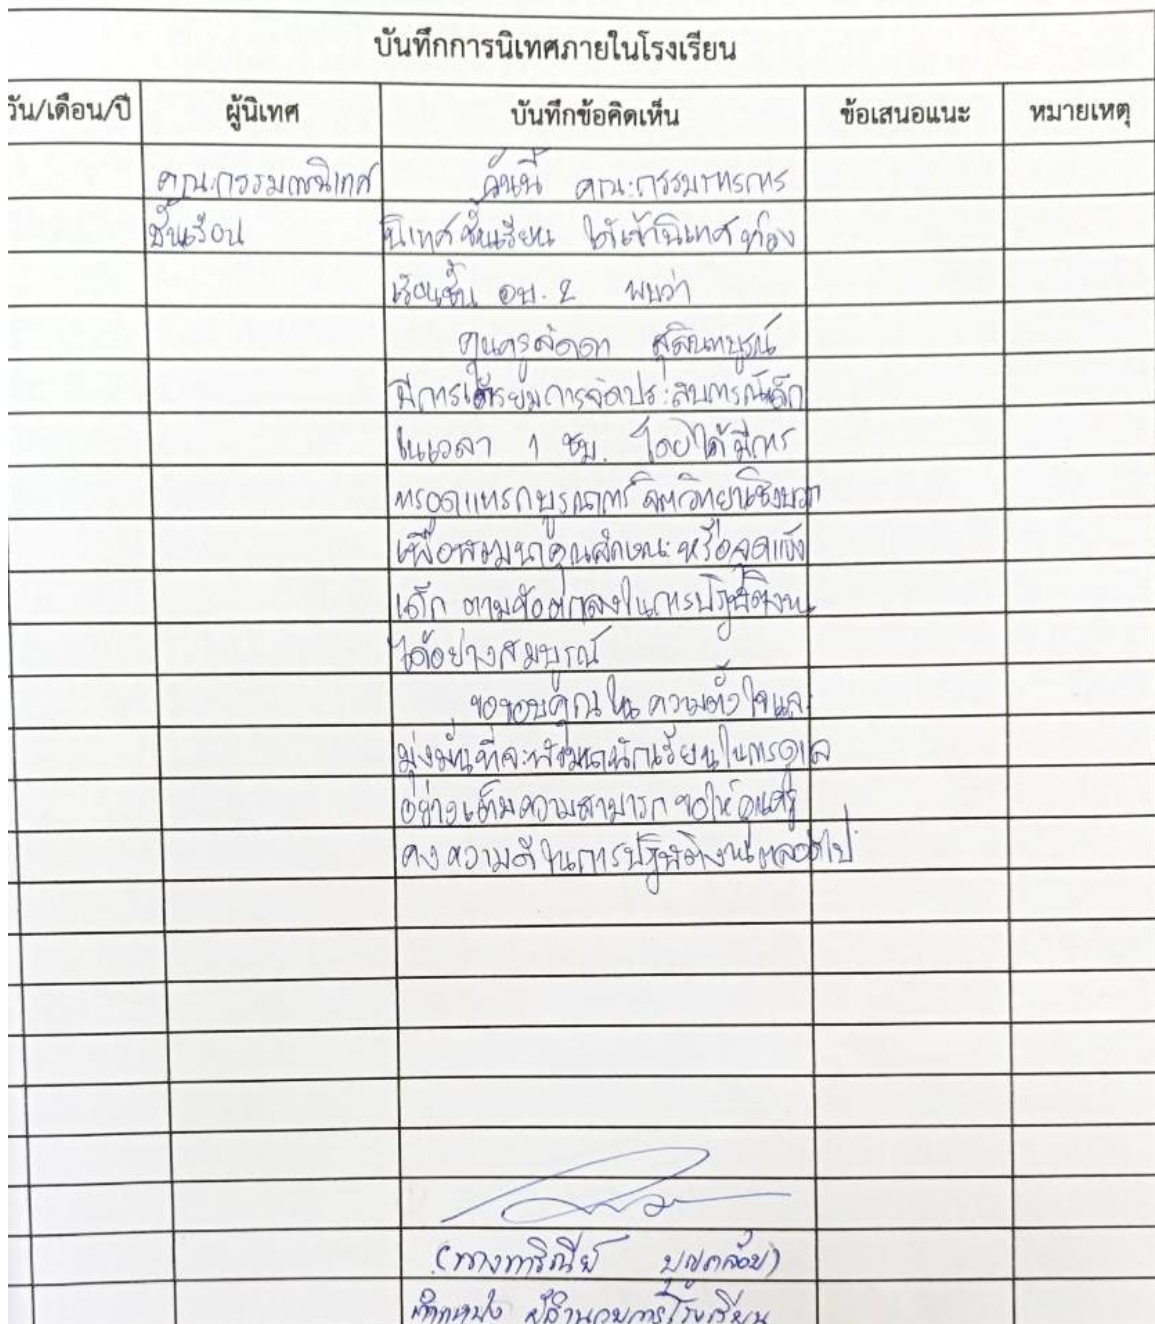 บันทึกการนิเทศภายในโรงเรียน
วัน/เดือน/ปี ผู้นิเทศ บันทึกข้อคิดเห็น ข้อเสนอแนะ หมายเหตุ
คณะกรรมการนิเทศ วันนี้ คณะกรรมการ
ชั้นเรียน นิเทศชั้นเรียน ได้เข้านิเทศห้อง
เรียนชั้น อบ. 2 พบว่า
คุณครูลัดดา
มีการเตรียมการจัดประสบการณ์เด็ก
ในเวลา 1 ชม. โดยได้มีการ
สอดแทรกบูรณาการ จิตวิทยาเชิงบวก
เพื่อพัฒนาคุณลักษณะหรือจุดแข็ง
เด็ก ตามข้อตกลงในการปฏิบัติงาน
ได้อย่างสมบูรณ์
ขอขอบคุณใน ความตั้งใจและ
มุ่งมั่นที่จะพัฒนานักเรียนในการดูแล
อย่างเต็มความสามารถ ขอให้คุณครู
คงความดีในการปฏิบัติงานตลอดไป
ตำแหน่ง ผู้อำนวยการโรงเรียน